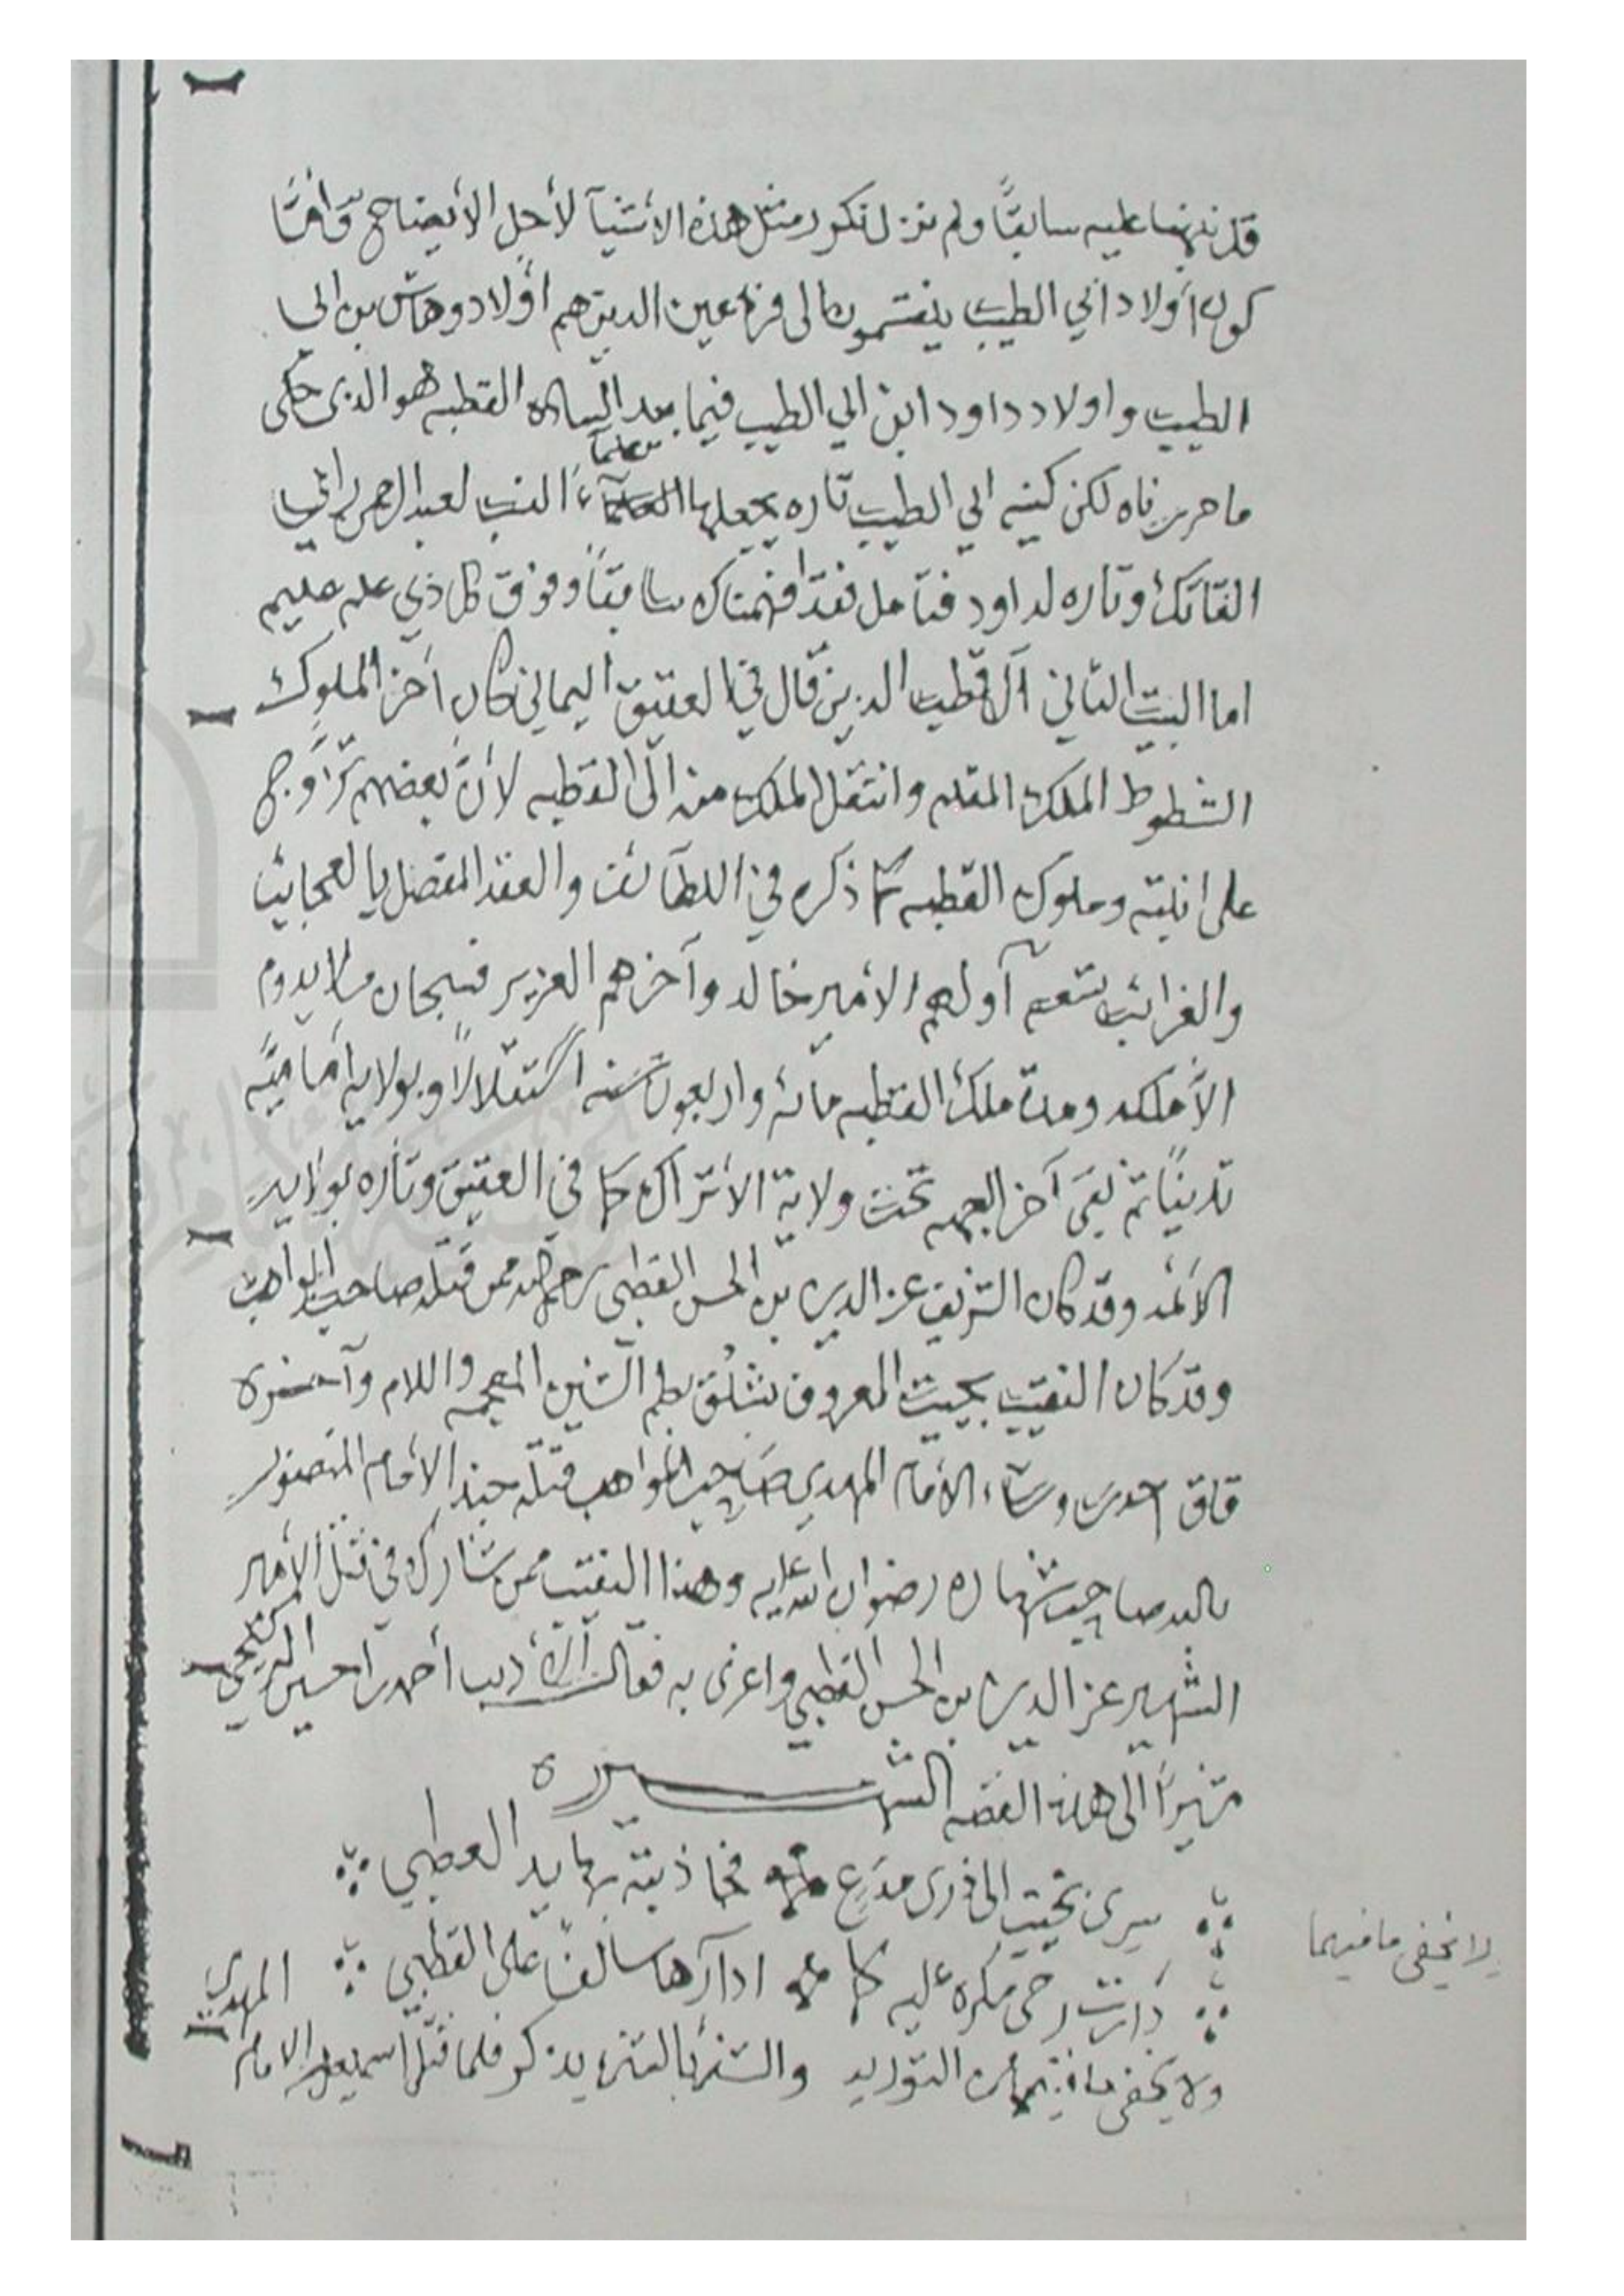 قد نبهنا عليه سابقًا ولم نزل نكرر مثل هذه الأشيآ لأجل الأيضاح وأمّا
كون أولاد ابي الطيب ينقسمون الى فرعين الدين هم أولاد وهاش بن ابي
الطيب واولاد داود ابن ابي الطيب فيما بعد الساده القطبه هو الذى حكى
ما حررناه لكن كنيه ابي الطيب تاره يجعلها علمآء النسب لعبد الرحمن ابي
الفاتك وتاره لداود فتأمل فقد افهمناك سابقاً وفوق كل ذي علم عليم
اما البيت الثاني آل قطب الدين قال في العقيق اليماني كان آخر الملوك
الشطوط الملك المقلم وانتقل الملك منه الى القطبه لأن بعضهم تزاوج
على ابنته وملوك القطبه كما ذكره في اللطآئف والعقد المفصل بالعجايب
والغرائب تسعه آولهم الأمير خالد وآخرهم العزيز فسبحان من لا يدوم
الأملكه ومدة ملك القطبه مائه واربعون سنه استقلالاً وبولايه أماميّه
تدينًا ثم بقى آخر الجهه تحت ولاية الأتراك كما في العقيق وتاره بولايه
الأئمه وقد كان الشريف عز الدين بن الحسن القطبى رحمه الله ممن قتله صاحب المواهب
وقد كان النقيب بخيت المعروف بشلُق بظم الشين المعجمه واللام وآخره
قاف احدى وسآء الأمام المهدي صاحب المواهب قتله جند الأمام المنصور
بالله صاحب شهاره رضوان الله عليه وهذا النقيب ممن شارك في قتل الأمير
الشهير عز الدين بن الحسن القطبي واغرى به فقال الأديب أحمد بن حسين الرقيحي
مشيرًا الى هذه القصه الشهـــيره
سرى بخيت الى فرى مدرع فجاذبته بها يد العطبي
دارت رحى مكره عليه كما ادارها سالفا على القطبي المهدي
ولا يخفى ما فيهما من التوريه والشئ بالشئ يذكر فلما قتل اسمعيل الامام
لا يخفى ما فيهما